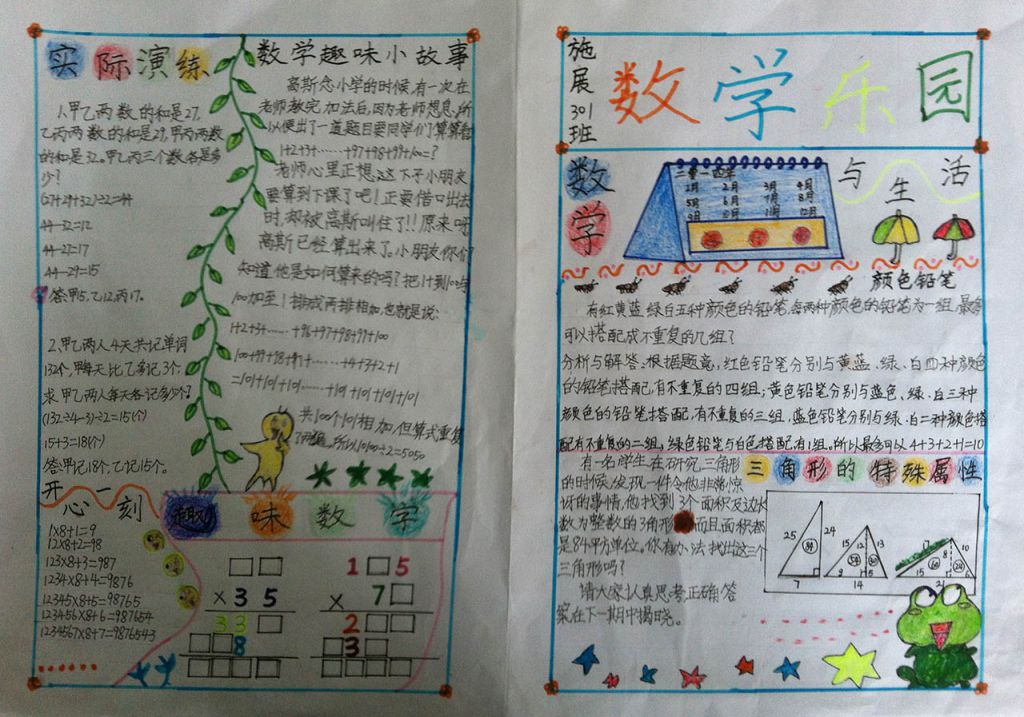 实际演练
1.甲乙两数的和是27,
乙丙两数的和是29,甲丙两数
的和是32.甲乙丙三个数各是多
少?
(27+29+32)÷2=44
44-32=12
44-27=17
44-29=15
答:甲5,乙12,丙17。
2.甲乙两人4天共记单词
132个,甲每天比乙多记3个.
求甲乙两人每天各记多少个?
(132÷4-3)÷2=15(个)
15+3=18(个)
答:甲记18个,乙记15个。
数学趣味小故事
高斯念小学的时候,有一次在
老师教完加法后,因为老师想息,所
以便出了一道题目要同学们算算看
1+2+3+……+97+98+99+100=?
老师心里正想,这下子小朋友
要算到下课了吧!正要借口出去
时,却被高斯叫住了!!原来呀
高斯已经算出来了,小朋友你们
知道他是如何算来的吗?把1到100与
100加至1排成两排相加,也就是说:
1+2+3+……+96+97+98+99+100
100+99+98+97+……+4+3+2+1
=101+101+101……+101+101+101+101
共100个101相加,但算式重复
了两遍,所以10100÷2=5050
开心一刻
1×8+1=9
12×8+2=98
123×8+3=987
1234×8+4=9876
12345×8+5=98765
123456×8+6=987654
1234567×8+7=9876543
趣味数学
□□
×35
33□
□□8
□□□□
1□5
×7□
2□□
□3□
□□□□
施展301班
数学乐园
数学与生活
二零一四年
1月 2月 3月 4月
5月 6月 7月 8月
9月 10月 11月 12月
颜色铅笔
有红黄蓝绿白五种颜色的铅笔,每两种颜色的铅笔为一组,最多
可以搭配成不重复的几组?
分析与解答:根据题意,红色铅笔分别与黄蓝、绿、白四种颜色
的铅笔搭配,有不重复的四组;黄色铅笔分别与蓝色、绿、白三种
颜色的铅笔搭配,有不重复的三组,蓝色铅笔分别与绿、白二种颜色搭
配有不重复的二组,绿色铅笔与白色搭配,有1组,所以最多可以4+3+2+1=10
三角形的特殊属性
有一名学生在研究三角形
的时候,发现一件令他非常惊
讶的事情,他找到3个面积及边长
数为整数的3角形而且面积都
是84平方单位。你有办法找出这三个
三角形吗?
请大家认真思考,正确答
案在下一期中揭晓。
25 84 24 7
15 12 13 9 5 14
17 8 10 15 6 21